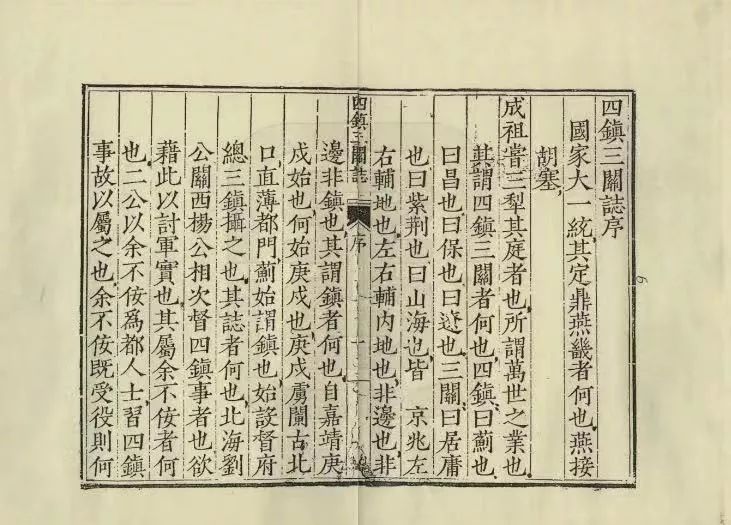 四鎮三關誌序
國家大一統其定鼎燕畿者何也燕接
胡塞
成祖嘗三犁其庭者也所謂萬世之業也
其謂四鎮三關者何也四鎮曰薊也
曰昌也曰保也曰遼也三關曰居庸
也曰紫荆也曰山海也皆 京兆左
右輔地也左右輔内地也非邊也非
四鎮三關誌
序
邊非鎮也其謂鎮者何也自嘉靖庚
戍始也何始庚戍也庚戍虜闌古北
口直薄都門薊始謂鎮也始設督府
總三鎮攝之也其誌者何也北海劉
公關西楊公相次督四鎮事者也欲
藉此以討軍實也其屬余不佞者何
也二公以余不佞爲都人士習四鎮
事故以屬之也余不佞既受役則何